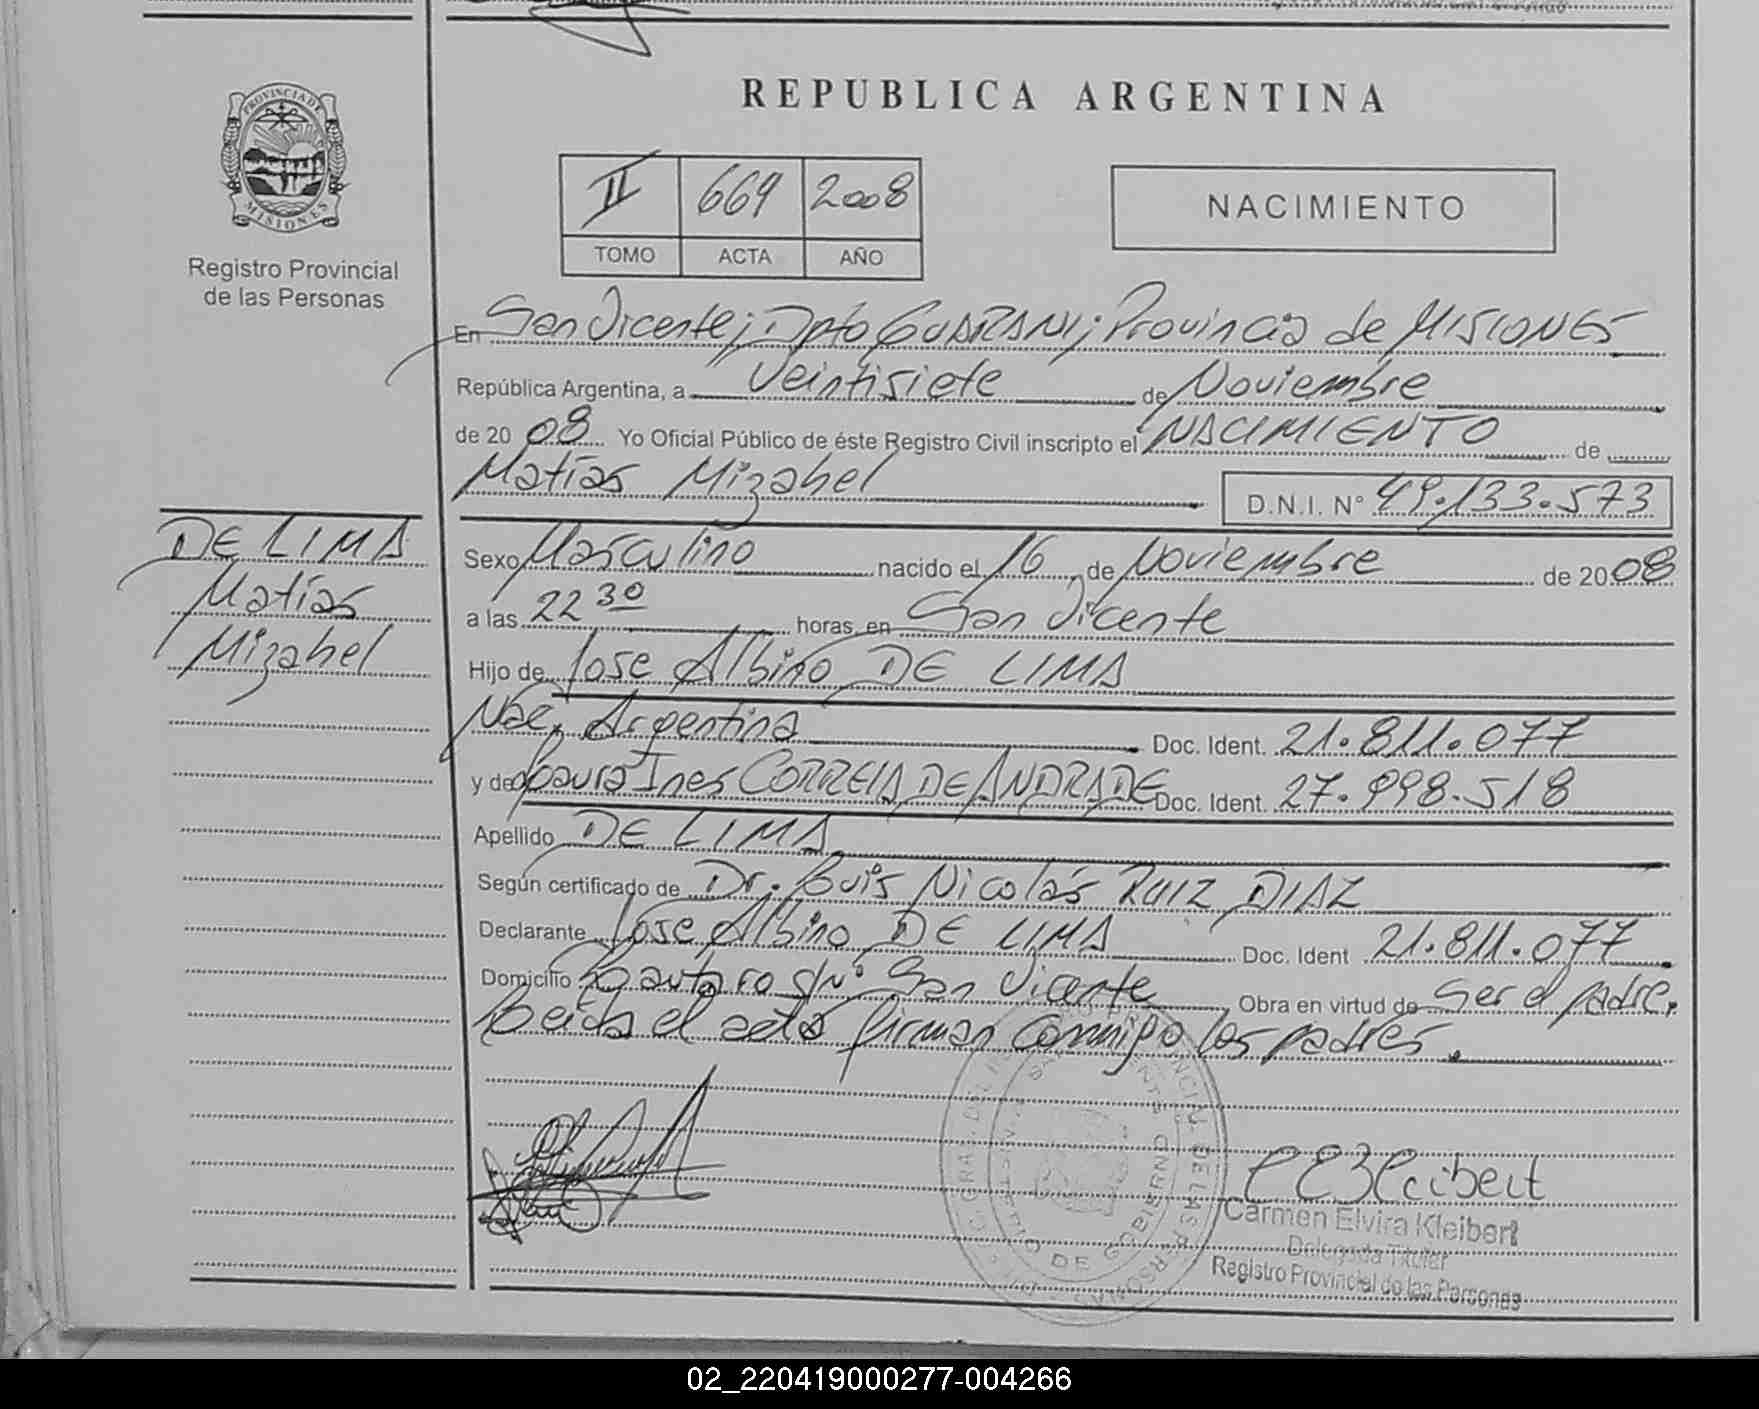 REPUBLICA ARGENTINA
PROVINCIA DE
MISIONES
Registro Provincial
de las Personas
II 669 2008
TOMO ACTA AÑO
NACIMIENTO
En San Vicente; Dpto GUARANI; Provincia de MISIONES
República Argentina, a Veintisiete de Noviembre
de 20 08 Yo Oficial Público de éste Registro Civil inscripto el NACIMIENTO de
Matías Mizahel D.N.I. N° 49.133.573
DE LIMA
Matías
Mizahel
Sexo Masculino nacido el 16 de Noviembre de 20 08
a las 22 30 horas, en San Vicente
Hijo de Jose Albino DE LIMA
Nac. Argentina Doc. Ident. 21.811.077
y de Laura Ines CORREIA DE ANDRADE Doc. Ident. 27.998.518
Apellido DE LIMA
Según certificado de Dr. Luis Nicolás RUIZ DIAZ
Declarante Jose Albino DE LIMA Doc. Ident 21.811.077
Domicilio Lautaro S/Nº San Vicente Obra en virtud de Ser el padre.
Leida el acta firman conmigo los padres.
CEKleibert
Carmen Elvira Kleibert
Delegada Titular
Registro Provincial de las Personas
02_220419000277-004266